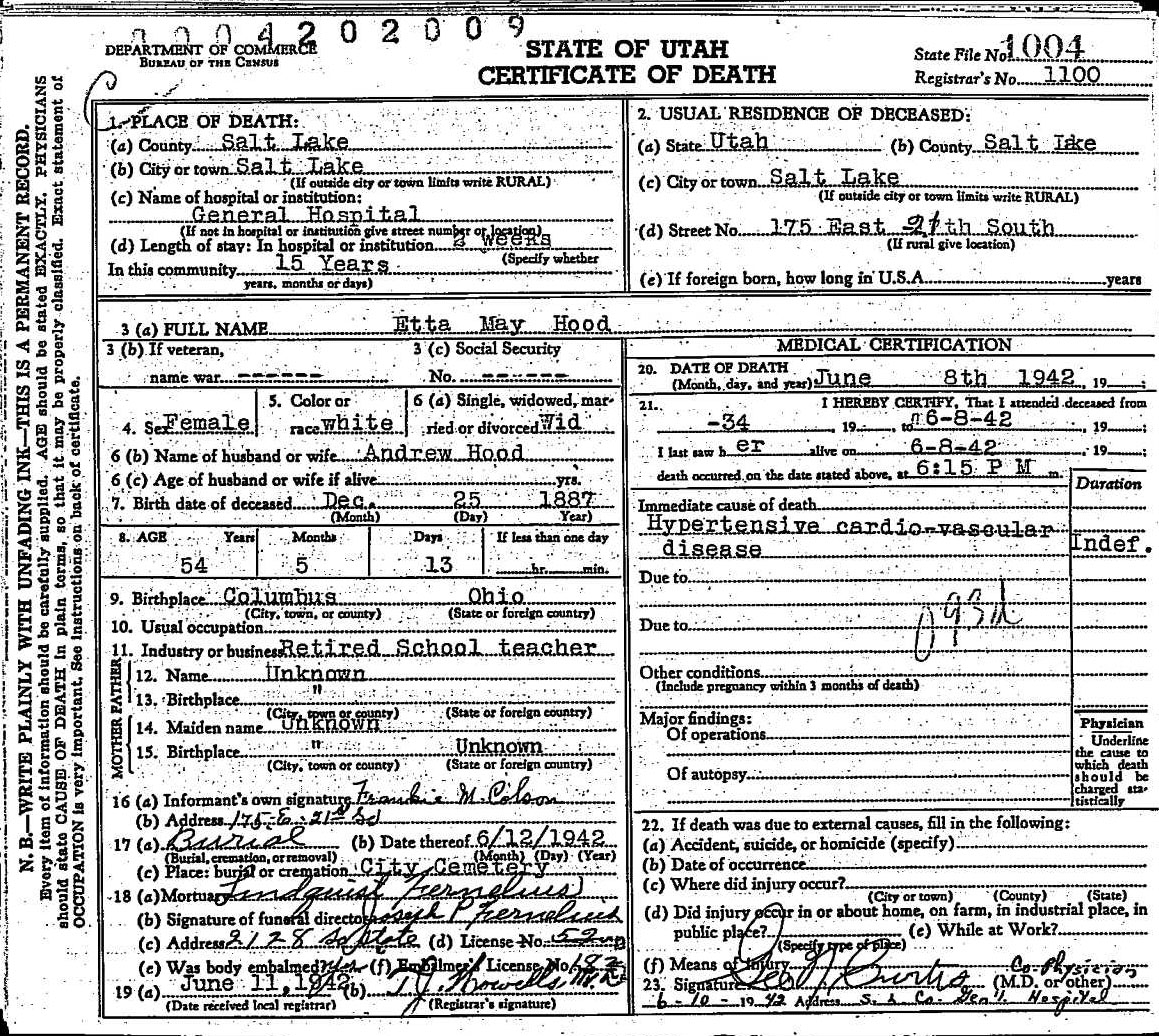 0004202009
DEPARTMENT OF COMMERCE
BUREAU OF THE CENSUS
STATE OF UTAH
CERTIFICATE OF DEATH
State File No. 1004
Registrar's No. 1100
N. B.—WRITE PLAINLY WITH UNFADING INK—THIS IS A PERMANENT RECORD.
Every item of information should be carefully supplied. AGE should be stated EXACTLY. PHYSICIANS
should state CAUSE OF DEATH in plain terms, so that it may be properly classified. Exact statement of
OCCUPATION is very important. See instructions on back of certificate.
1. PLACE OF DEATH:
(a) County Salt Lake
(b) City or town Salt Lake
(If outside city or town limits write RURAL)
(c) Name of hospital or institution:
General Hospital
(If not in hospital or institution give street number or location)
(d) Length of stay: In hospital or institution 2 weeks
(Specify whether
In this community 15 Years
years, months or days)
2. USUAL RESIDENCE OF DECEASED:
(a) State Utah (b) County Salt Lake
(c) City or town Salt Lake
(If outside city or town limits write RURAL)
(d) Street No. 175 East 21th South
(If rural give location)
(e) If foreign born, how long in U.S.A. years
3 (a) FULL NAME Etta May Hood
3 (b) If veteran, 3 (c) Social Security
name war ------ No. ------
4. Sex Female
5. Color or
race white
6 (a) Single, widowed, mar-
ried or divorced Wid
6 (b) Name of husband or wife Andrew Hood
6 (c) Age of husband or wife if alive yrs.
7. Birth date of deceased Dec. 25 1887
(Month) (Day) Year)
8. AGE Years Months Days If less than one day
54 5 13 hr. min.
9. Birthplace Columbus Ohio
(City, town, or county) (State or foreign country)
10. Usual occupation
11. Industry or business Retired School teacher
FATHER
12. Name Unknown
13. Birthplace "
(City, town or county) (State or foreign country)
MOTHER
14. Maiden name Unknown
15. Birthplace " Unknown
(City, town or county) (State or foreign country)
16 (a) Informant's own signature Frankie M. Colson
(b) Address 175 E. 21st So
17 (a) Burial (b) Date thereof 6/12/1942
(Burial, cremation, or removal) (Month) (Day) (Year)
(c) Place: burial or cremation City Cemetery
18 (a) Mortuary Lindquist Fernelius
(b) Signature of funeral director Joseph P Fernelius
(c) Address 2128 So State (d) License No. 52
(e) Was body embalmed yes (f) Embalmer's License No. 182
19 (a) June 11, 1942 (b) T. J. Howells M.D.
(Date received local registrar) (Registrar's signature)
MEDICAL CERTIFICATION
20. DATE OF DEATH
(Month, day, and year) June 8th 1942, 19 ;
21. I HEREBY CERTIFY, That I attended deceased from
-34 19 , to 6-8-42 , 19 ;
I last saw h er alive on 6-8-42 , 19 ;
death occurred on the date stated above, at 6:15 P M m.
Duration
Immediate cause of death
Hypertensive cardio-vascular
disease Indef.
Due to
Due to
Other conditions
(Include pregnancy within 3 months of death)
Major findings:
Of operations
Of autopsy
Physician
Underline
the cause to
which death
should be
charged sta-
tistically
22. If death was due to external causes, fill in the following:
(a) Accident, suicide, or homicide (specify)
(b) Date of occurrence
(c) Where did injury occur?
(City or town) (County) (State)
(d) Did injury occur in or about home, on farm, in industrial place, in
public place? (e) While at Work?
(Specify type of place)
(f) Means of injury
23. Signature Geo N Curtis Co-Physician (M.D. or other)
6-10-1942 Address S. L. Co. Gen'l. Hospital